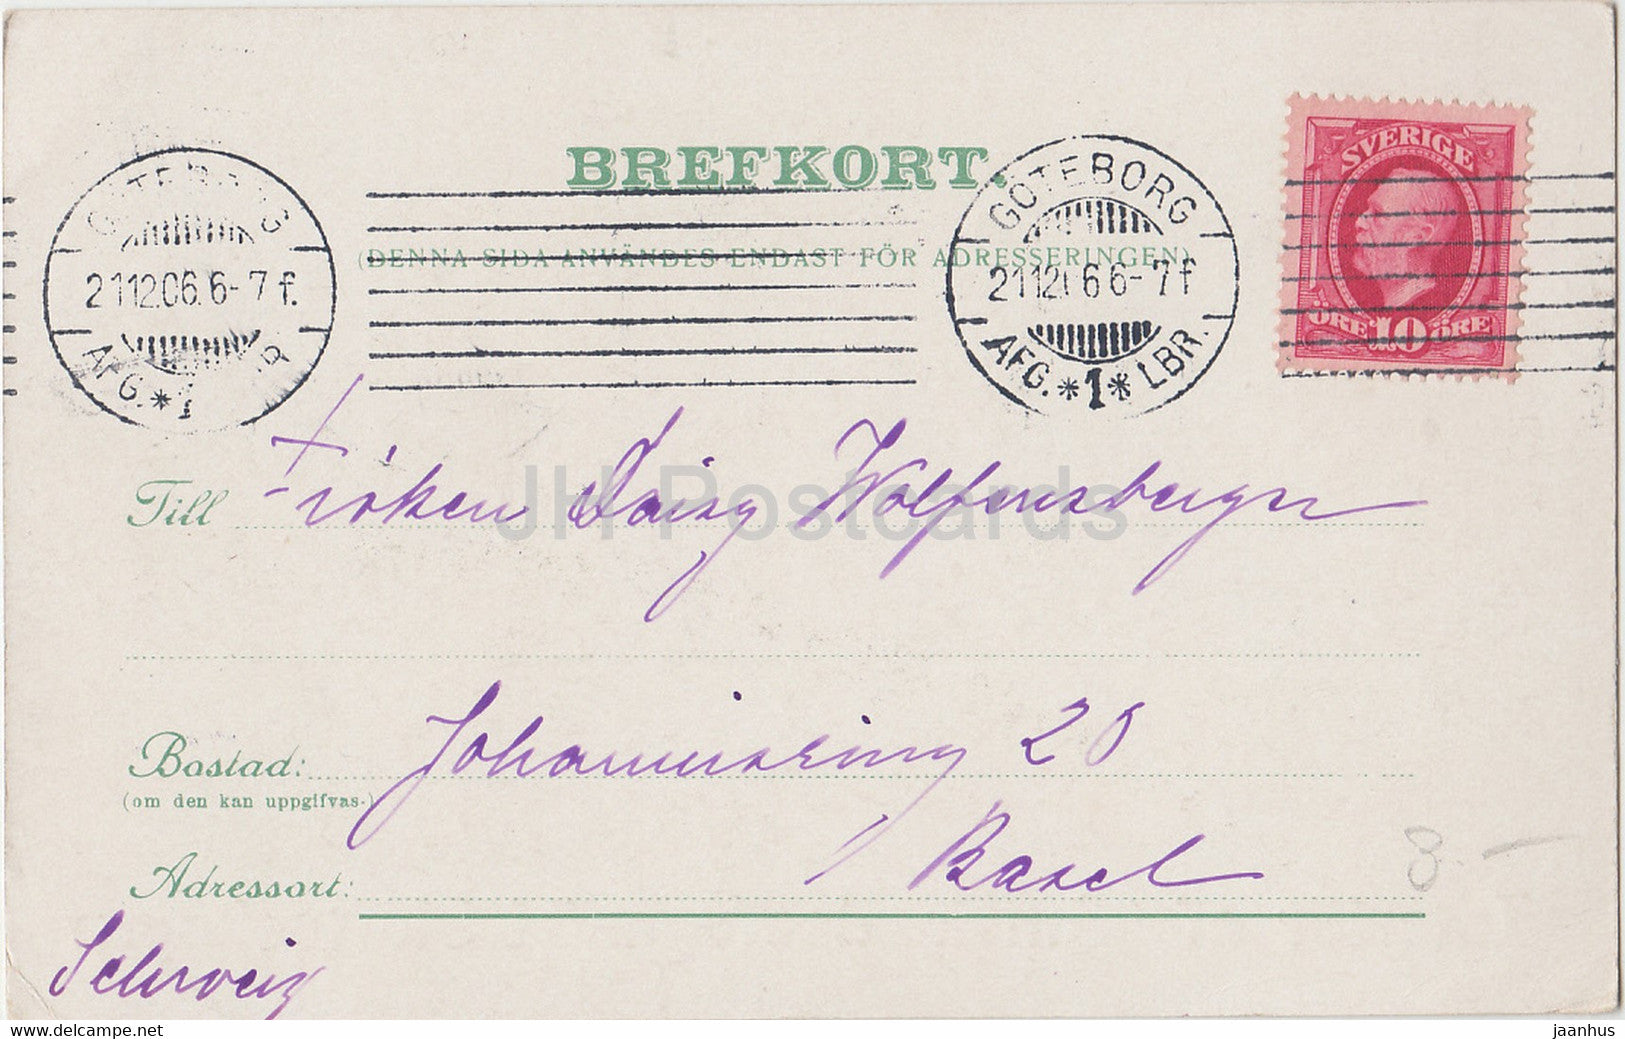 BREFKORT.
(DENNA SIDA ANVÄNDES ENDAST FÖR ADRESSERINGEN)
GÖTEBORG
21.12.06. 6-7 f.
AFG. *1* LBR.
GÖTEBORG
21 12 06 6-7 f
AFG. *1* LBR.
SVERIGE
ÖRE 10 ÖRE
Till Fröken Daisy Wolfensberger
JH Postcards
Bostad: Johannisring 20
(om den kan uppgifvas.)
Adressort: Basel
Schweiz
8.-
www.delcampe.net
jaanhus